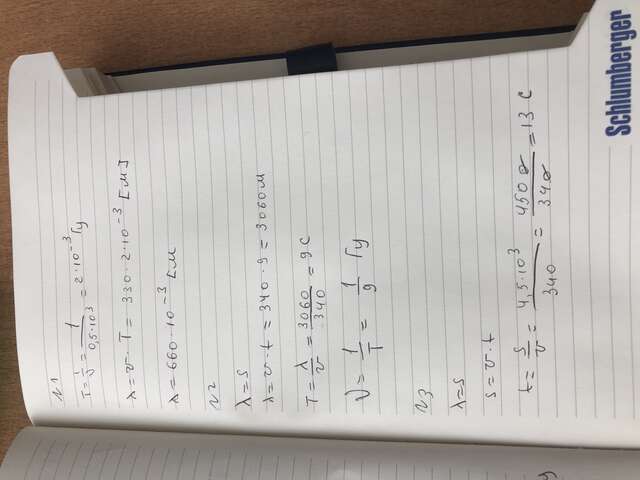 №1
T = 1/ν = 1/0,5·10³ = 2·10⁻³ Гц
λ = v · T = 330·2·10⁻³ [м]
λ = 660·10⁻³ [м
№2
λ = s
λ = v·t = 340·9 = 3060м
T = λ/v = 3060/340 = 9 с
ν = 1/T = 1/9 Гц
№3
λ=s
s = v·t
t = s/v = 4,5·10³/340 = 4500/340 = 13 с
Schlumberger